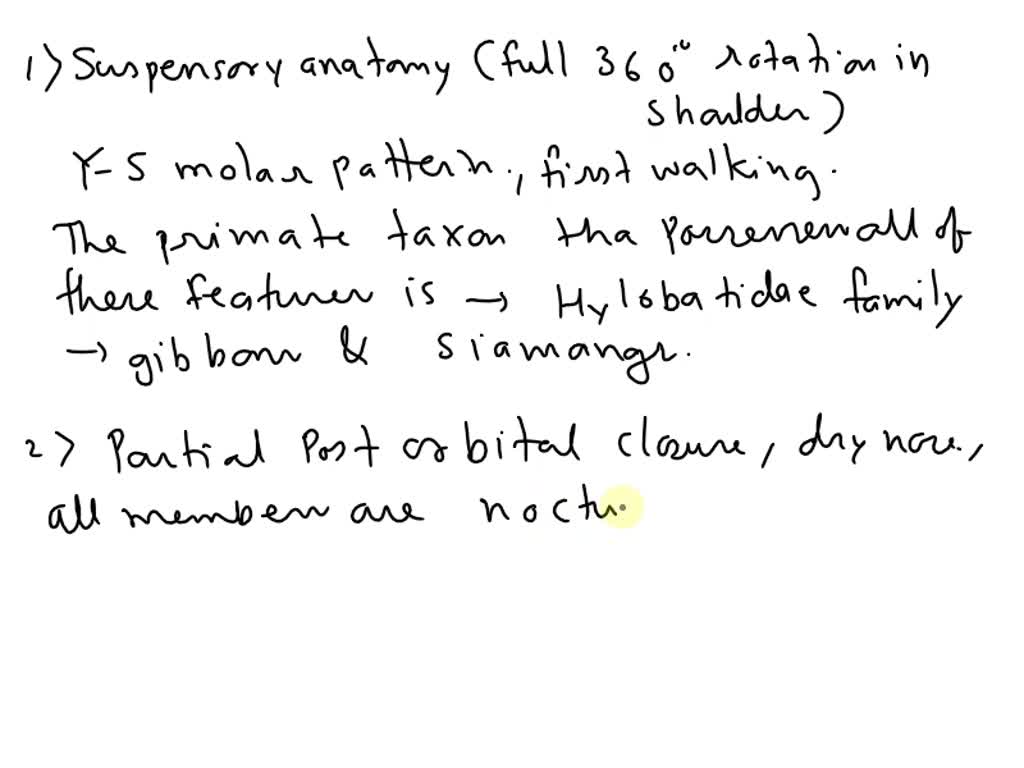 1) Suspensory anatomy (full 360° rotation in
shoulder)
Y-5 molar pattern, fist walking.
The primate taxon tha possesses all of
these features is → Hylobatidae family
→ gibbons & siamangs.
2) Partial Post orbital closure, dry nose,
all members are noctu